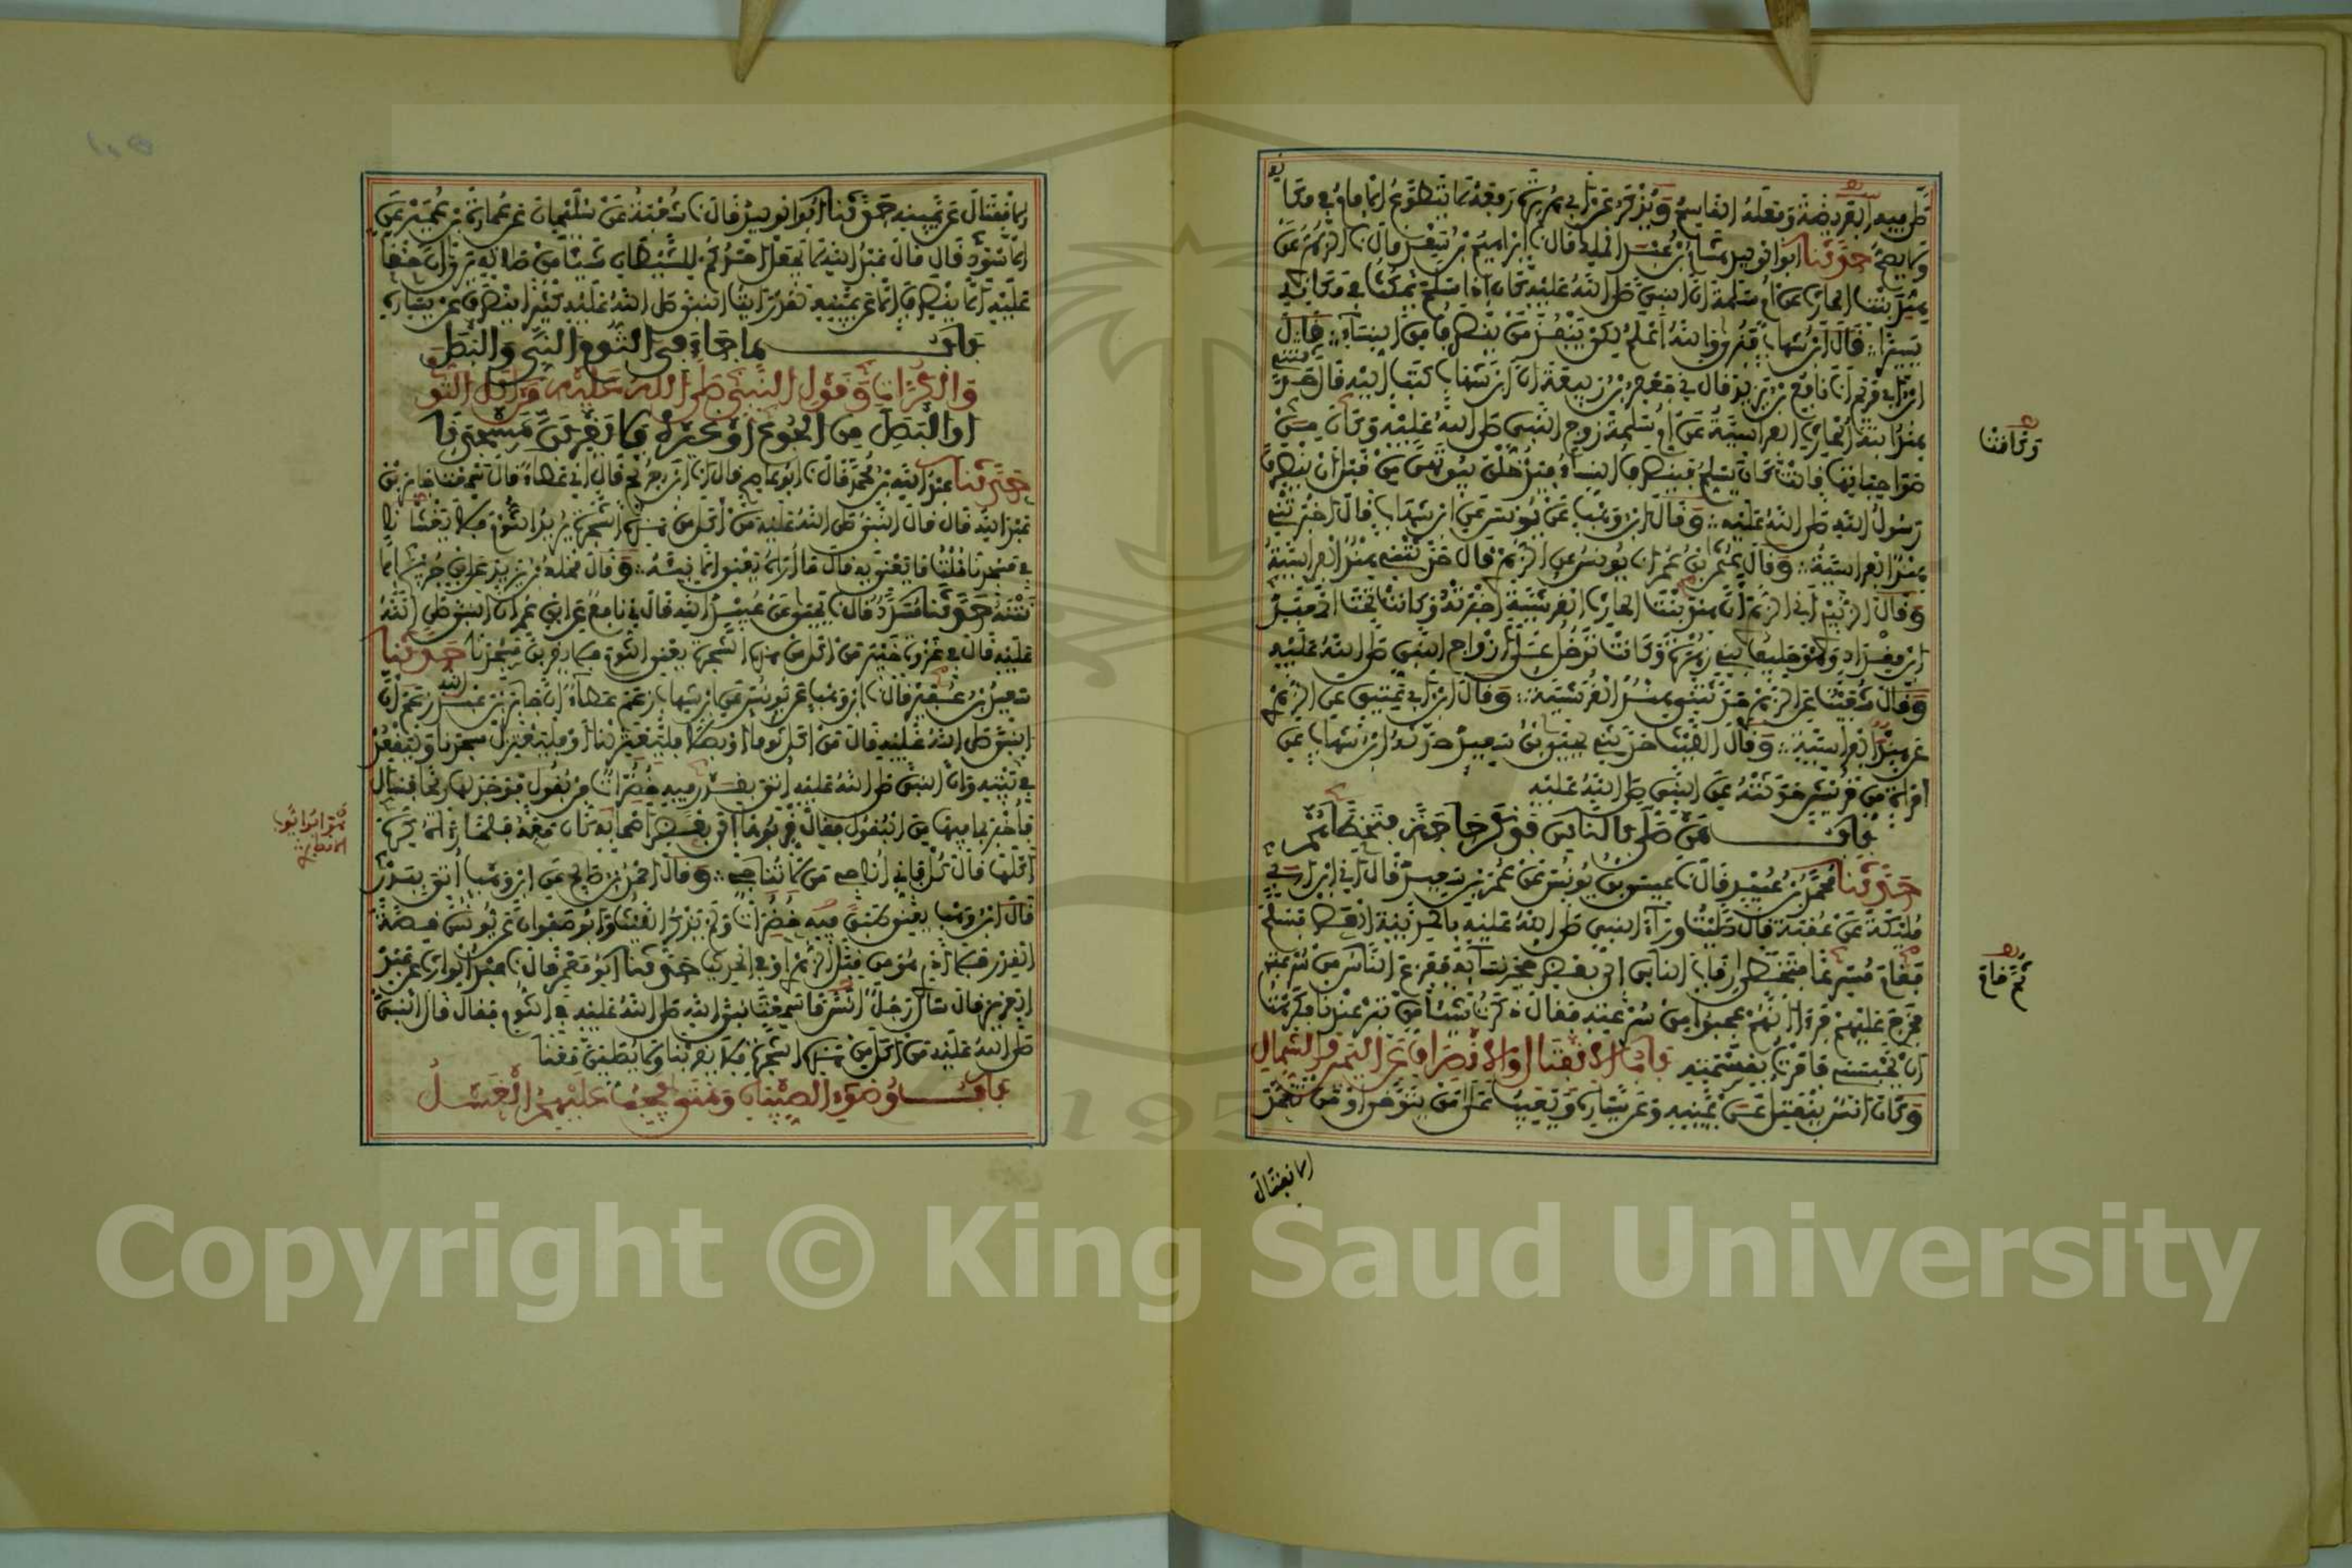 صلى فيه الفريضة وفعله القاسم ويذكر عن أبي هريرة رفعه لا يتطوع الإمام في مكانه
ولا يصح حدثنا أبو الوليد هشام بن عبد الملك قال نا إبراهيم بن سعد قال نا الزهري عن
هند بنت الحارث عن أم سلمة أن النبي صلى الله عليه كان إذا سلم يمكث في مكانه
يسيرا قال ابن شهاب فنرى والله أعلم لكي ينفذ من ينصرف من النساء وقال
ابن أبي مريم أنا نافع بن يزيد قال في جعفر بن ربيعة أن ابن شهاب كتب إليه قال حدثتني
هند ابنة الحارث الفراسية عن أم سلمة زوج النبي صلى الله عليه وكانت من
صواحباتها قالت كان يسلم فينصرف النساء فيدخلن بيوتهن من قبل أن ينصرف
رسول الله صلى الله عليه وقال ابن وهب عن يونس عن ابن شهاب قال أخبرتني
هند الفراسية وقال عثمان بن عمر نا يونس عن الزهري قال حدثتني هند الفراسية
وقال الزبيدي في الزهري أن هند بنت الحارث القرشية أخبرته وكانت تحت معبد
ابن مقداد وهو حليف بني زهرة وكانت تدخل على أزواج النبي صلى الله عليه
وقال شعيب عن الزهري حدثتني هند القرشية وقال ابن أبي عتيق عن الزهري
عن هند الفراسية وقال الليث حدثني يحيى بن سعيد حدثه ابن شهاب عن
امرأة من قريش حدثته عن النبي صلى الله عليه
باب من صلى بالناس فذكر حاجة فتخطاهم
حدثنا محمد بن عبيد قال نا عيسى بن يونس عن عمر بن سعيد قال في ابن أبي
مليكة عن عقبة قال صليت وراء النبي صلى الله عليه بالمدينة العصر فسلم
فقام مسرعا فتخطى رقاب الناس إلى بعض حجر نسائه ففزع الناس من سرعته
فخرج عليهم فرأى أنهم عجبوا من سرعته فقال ذكرت شيئا من تبر عندنا فكرهت
أن يحبسني فأمرت بقسمته باب الانفتال والانصراف عن اليمين والشمال
وكان أنس ينفتل عن يمينه وعن يساره ويعيب على من يتوخى أو من تعمد
الانفتال
وكانت
ثم قام
الانفتال عن يمينه حدثنا أبو الوليد قال نا شعبة عن سليمان عن عمارة بن عمير عن
الأسود قال قال عبد الله لا يجعل أحدكم للشيطان شيئا من صلاته يرى أن حقا
عليه ألا ينصرف إلا عن يمينه لقد رأيت النبي صلى الله عليه كثيرا ينصرف عن يساره
باب ما جاء في الثوم النيء والبصل
والكراث وقول النبي صلى الله عليه من أكل الثوم
أو البصل من الجوع أو غيره فلا يقربن مسجدنا
حدثنا عبد الله بن محمد قال نا أبو عاصم قال أنا ابن جريج قال في عطاء قال سمعت جابر بن
عبد الله قال قال النبي صلى الله عليه من أكل من هذه الشجرة يريد الثوم فلا يغشانا
في مسجدنا قلت ما يعني به قال ما أراه يعني إلا نيئه وقال مخلد بن يزيد عن ابن جريج إلا
نتنه حدثنا مسدد قال نا يحيى عن عبيد الله قال في نافع عن ابن عمر أن النبي صلى الله
عليه قال في غزوة خيبر من أكل من هذه الشجرة يعني الثوم فلا يقربن مسجدنا حدثنا
سعيد بن عفير قال نا ابن وهب عن يونس عن ابن شهاب زعم عطاء أن جابر بن عبد الله زعم أن
النبي صلى الله عليه قال من أكل ثوما أو بصلا فليعتزلنا أو فليعتزل مسجدنا وليقعد
في بيته وأن النبي صلى الله عليه أتي بقدر فيه خضرات من بقول فوجد لها ريحا فسأل
فأخبر بما فيها من البقول فقال قربوها إلى بعض أصحابه كان معه فلما رآه كره
أكلها قال كل فإني أناجي من لا تناجي وقال أحمد بن صالح عن ابن وهب أتي ببدر
قال ابن وهب يعني طبقا فيه خضرات ولم يذكر الليث وأبو صفوان عن يونس قصة
القدر فلا أدري هو من قول الزهري أو في الحديث حدثنا أبو معمر قال نا عبد الوارث عن عبد
العزيز قال سأل رجل أنس ما سمعت نبي الله صلى الله عليه في الثوم فقال قال النبي
صلى الله عليه من أكل من هذه الشجرة فلا يقربنا ولا يصلين معنا
باب وضوء الصبيان ومتى يجب عليهم الغسل